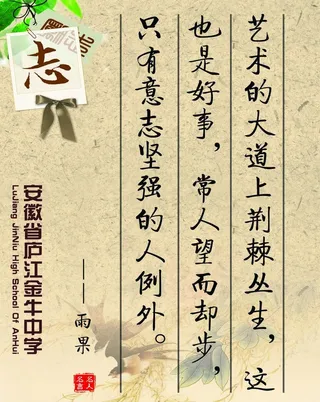 志
艺术的大道上荆棘丛生，这
也是好事，常人望而却步，
只有意志坚强的人例外。
——雨果
安徽省庐江金牛中学
LuJiang JinNiu High School Of AnHui
名人
名言